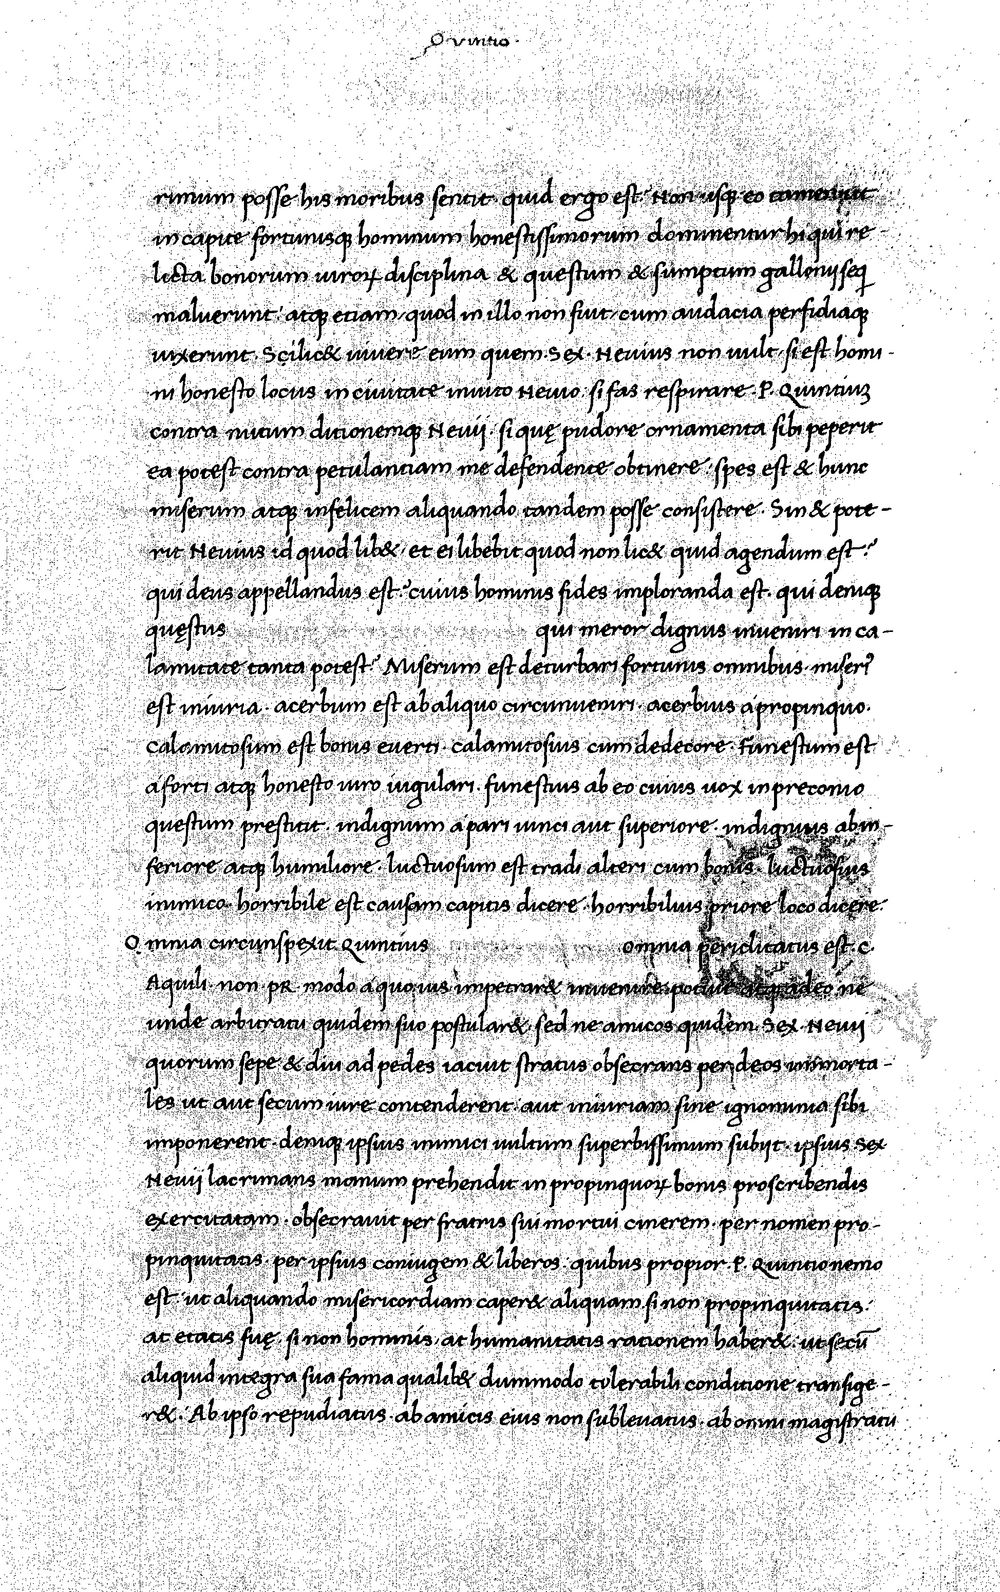 Quintio.
rimum posse his moribus sentit. quid ergo est? Non usq; eo tamen ut
in capite fortunisq; hominum honestissimorum dominentur hi qui re-
licta bonorum uiroꝝ disciplina & questum & sumptum gallonij seq
maluerunt: atq; etiam quod in illo non fuit, cum audacia perfidiaq;
uixerunt. Scilic& uiuere eum quem Sex. Neuius non uult. si est homi-
ni honesto locus in ciuitate inuito Neuio. si fas respirare P. Quintiuꝫ
contra nutum ditionemq; Neuij. si quę pudore ornamenta sibi peperit
ea potest contra petulantiam me defendente obtinere. spes est & hunc
miserum atq; infelicem aliquando tandem posse consistere. Sin & pote-
rit Neuius id quod lib& et ei libebit quod non lic& quid agendum est?
qui deus appellandus est? cuius hominis fides imploranda est. qui deniq;
quęstus qui meror dignus inueniri in ca-
lamitate tanta potest? Miserum est deturbari fortunis omnibus. miseri
est iniuria. acerbum est ab aliquo circumueniri. acerbius a propinquo.
Calamitosum est bonis euerti. calamitosius cum dedecore. Funestum est
a forti atq; honesto uiro iugulari. funestius ab eo cuius uox in preconio
questum prestitit. indignum a pari uinci aut superiore. indignius ab in-
feriore atq; humiliore. luctuosum est tradi alteri cum bonis. luctuosius
inimico. horribile est causam capitis dicere. horribilius priore loco dicere.
Omnia circunspexit Quintius omnia periclitatus est. C.
Aquili non pR. modo a quo ius impetrar& inuenire potuit atq; adeo ne
unde arbitratu quidem suo postular&. sed ne amicos quidem Sex. Neuij
quorum sepe & diu ad pedes iacuit stratus obsecrans per deos immorta-
les ut aut secum iure contenderent: aut iniuriam sine ignominia sibi
imponerent. deniq; ipsius inimici uultum superbissimum subijt. ipsius Sex
Neuij lacrimans manum prehendit in propinquoꝝ bonis proscribendis
exercitatam. obsecrauit per fratris sui mortui cinerem. per nomen pro-
pinquitatis. per ipsius coniugem & liberos: quibus propior P. Quintio nemo
est: ut aliquando misericordiam caper& aliquam. si non propinquitatis:
at etatis suę, si non hominis, at humanitatis rationem haber&: ut secū
aliquid integra sua fama qualib& dummodo tolerabili conditione transige-
r&. Ab ipso repudiatus. ab amicis eius non subleuatus. ab omni magistratu